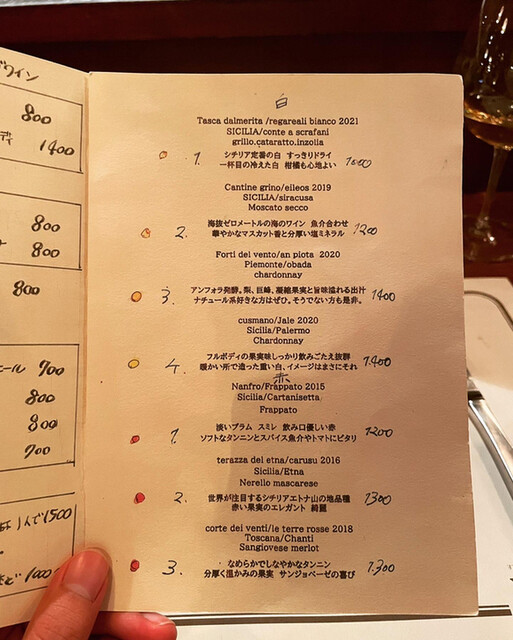 ワイン
800
1400
800
800
800
700
800
800
700
1人で1500
1000
白
Tasca dalmerita /regareali bianco 2021
SICILIA/conte a scrafani
grillo.cataratto.inzolia
1. シチリア定番の白 すっきりドライ
一杯目の冷えた白 柑橘も心地よい 1000
Cantine grino/eileos 2019
SICILIA/siracusa
Moscato secco
2. 海抜ゼロメートルの海のワイン 魚介合わせ
華やかなマスカット香と分厚い塩ミネラル 1200
Forti del vento/an piota 2020
Piemonte/obada
chardonnay
3. アンフォラ発酵。梨、巨峰、凝縮果実と旨味溢れる出汁
ナチュール系好きな方はぜひ。そうでない方も是非。 1400
cusmano/Jale 2020
Sicilia/Palermo
Chardonnay
4. フルボディの果実味しっかり飲みごたえ抜群
暖かい所で造った重い白、イメージはまさにそれ 1.400
赤
Nanfro/Frappato 2015
Sicilia/Cartanisetta
Frappato
1. 淡いプラム スミレ 飲み口優しい赤
ソフトなタンニンとスパイス魚介やトマトにピタリ 1200
terazza del etna/carusu 2016
Sicilia/Etna
Nerello mascarese
2. 世界が注目するシチリアエトナ山の地品種
赤い果実のエレガント 綺麗 1300
corte dei venti/le terre rosse 2018
Toscana/Chanti
Sangiovese merlot
3. なめらかでしなやかなタンニン
分厚く温かみの果実 サンジョベーゼの喜び 1.300